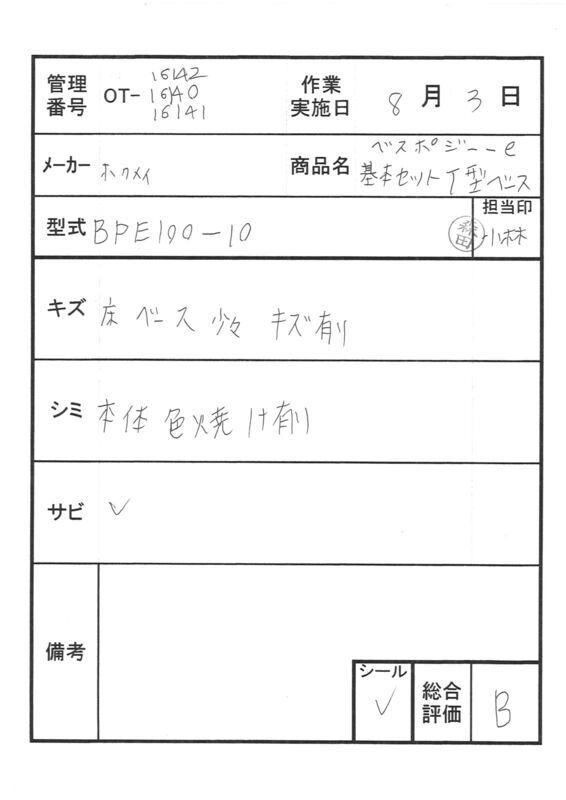 管理番号 OT- 16142
16140
16141
作業実施日 8月3日
メーカー ホクメイ
商品名 ベスポジーーe
基本セットT型ベース
型式 BPE100-10
担当印 森田 小林
キズ 床ベース少々 キズ有り
シミ 本体色焼け有り
サビ ✓
備考
シール ✓
総合評価 B